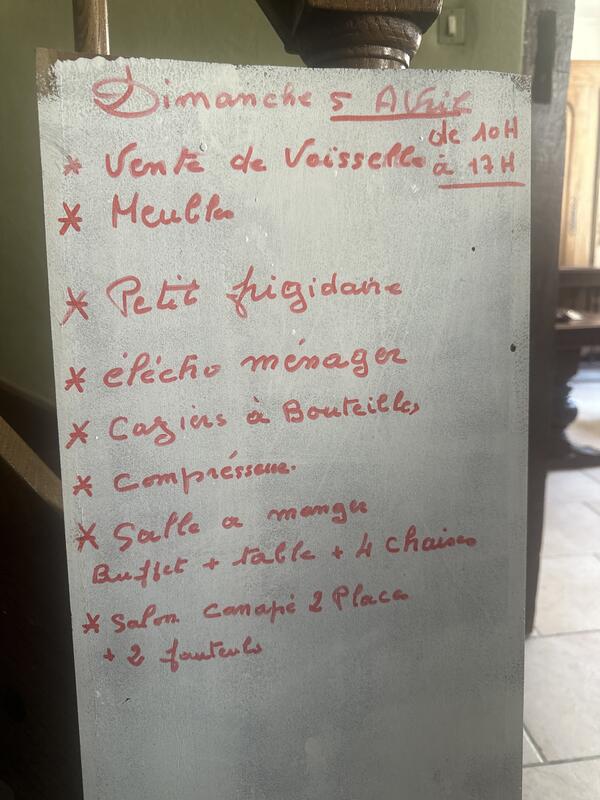 Dimanche 5 Avril
de 10H
à 17H
* Vente de Voisselle
* Meubles
* Petit frigidaire
* éléctro ménager
* Casiers à Bouteilles
* Comprésseur.
* Salle a manger
Buffet + table + 4 chaises
* Salon canapé 2 Places
+ 2 fauteuls